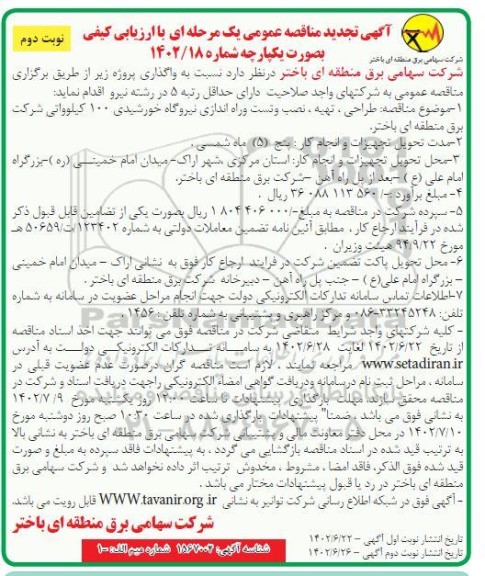 آگهی تجدید مناقصه عمومی یک مرحله ای با ارزیابی کیفی
بصورت یکپارچه شماره ۱۴۰۲/۱۸
نوبت دوم
شرکت سهامی برق منطقه ای باختر
شرکت سهامی برق منطقه ای باختر درنظر دارد نسبت به واگذاری پروژه زیر از طریق برگزاری
مناقصه عمومی به شرکتهای واجد صلاحیت دارای حداقل رتبه ۵ در رشته نیرو اقدام نماید:
۱-موضوع مناقصه: طراحی ، تهیه ، نصب وتست وراه اندازی نیروگاه خورشیدی ۱۰۰ کیلوواتی شرکت
برق منطقه ای باختر.
۲-مدت تحویل تجهیزات و انجام کار : پنج (۵) ماه شمسی .
۳-محل تحویل تجهیزات و انجام کار: استان مرکزی ،شهر اراک- میدان امام خمینی (ره )-بزرگراه
امام علی (ع ) -بعد از پل راه آهن -شرکت برق منطقه ای باختر.
۴- مبلغ برآورد :-/ ۵۶۰ ۱۱۳ ۰۸۸ ۳۶ ریال .
۵- سپرده شرکت در مناقصه به مبلغ-/۰۰۰ ۴۰۶ ۸۰۴ ۱ ریال بصورت یکی از تضامین قابل قبول ذکر
شده در فرآیند ارجاع کار ، مطابق آئین نامه تضمین معاملات دولتی به شماره ۱۲۳۴۰۲/ت۵۰۶۵۹ هـ
مورخ ۹۴/۹/۲۲ هیئت وزیران .
۶- محل تحویل پاکت تضمین شرکت در فرایند ارجاع کار فوق به نشانی اراک - میدان امام خمینی
- بزرگراه امام علی(ع ) - جنب پل راه آهن - دبیرخانه شرکت برق منطقه ای باختر .
۷-اطلاعات تماس سامانه تدارکات الکترونیکی دولت جهت انجام مراحل عضویت در سامانه به شماره
تلفن: ۳۳۲۴۵۲۴۸-۰۸۶ و مرکز راهبری و پشتیبانی به شماره تلفن : ۱۴۵۶ .
- کلیه شرکتهای واجد شرایط متقاضی شرکت در مناقصه فوق می توانند جهت اخذ اسناد مناقصه
از تاریخ ۱۴۰۲/۶/۲۲ لغایت ۱۴۰۲/۶/۲۸ به سامانه تدارکات الکترونیکی دولت به آدرس
www.setadiran.ir مراجعه نمایند . لازم است مناقصه گران درصورت عدم عضویت قبلی در
سامانه ، مراحل ثبت نام درسامانه ودریافت گواهی امضاء الکترونیکی راجهت دریافت اسناد و شرکت در
مناقصه محقق سازند. مهلت بارگذاری پیشنهادات تا ساعت ۱۲:۰۰ روز یکشنبه مورخ ۱۴۰۲/۷/۹
به نشانی فوق می باشد . ضمنا" پیشنهادات بارگذاری شده در ساعت ۱۰:۳۰ صبح روز دوشنبه مورخ
۱۴۰۲/۷/۱۰ در محل دفتر معاونت مالی و پشتیبانی شرکت سهامی برق منطقه ای باختر به نشانی بالا
به ترتیب قید شده در اسناد مناقصه بازگشایی می گردد ، به پیشنهادات فاقد سپرده به مبلغ و صورت
قید شده فوق الذکر، فاقد امضا ، مشروط ، مخدوش ترتیب اثر داده نخواهد شد و شرکت سهامی برق
منطقه ای باختر در رد یا قبول پیشنهادات مختار می باشد .
- آگهی فوق در شبکه اطلاع رسانی شرکت توانیر به نشانی WWW.tavanir.org.ir قابل رویت می باشد.
شرکت سهامی برق منطقه ای باختر
تاریخ انتشار نوبت اول آگهی - ۱۴۰۲/۶/۲۲
تاریخ انتشار نوبت دوم آگهی - ۱۴۰۲/۶/۲۶
شناسه آگهی: ۱۵۶۷۰۰۲ شماره میم الف: ۱۰-